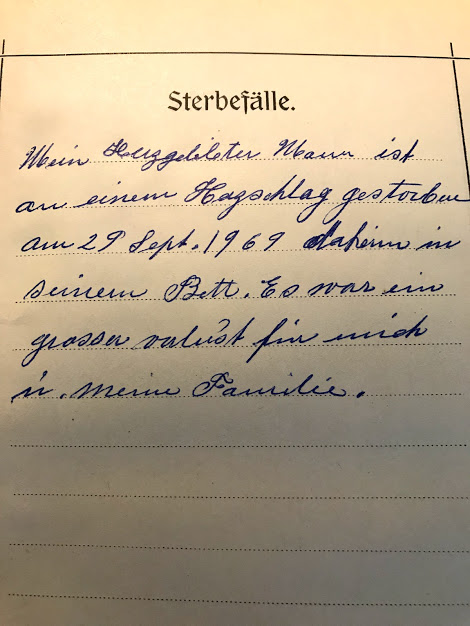 Sterbefälle.
Mein Herzgeliebter Mann ist
an einem Hazschlag gestorben
am 29 Sept. 1969 Daheim in
seinem Bett. Es war ein
grosser verlust für mich
ü. meine Familie.